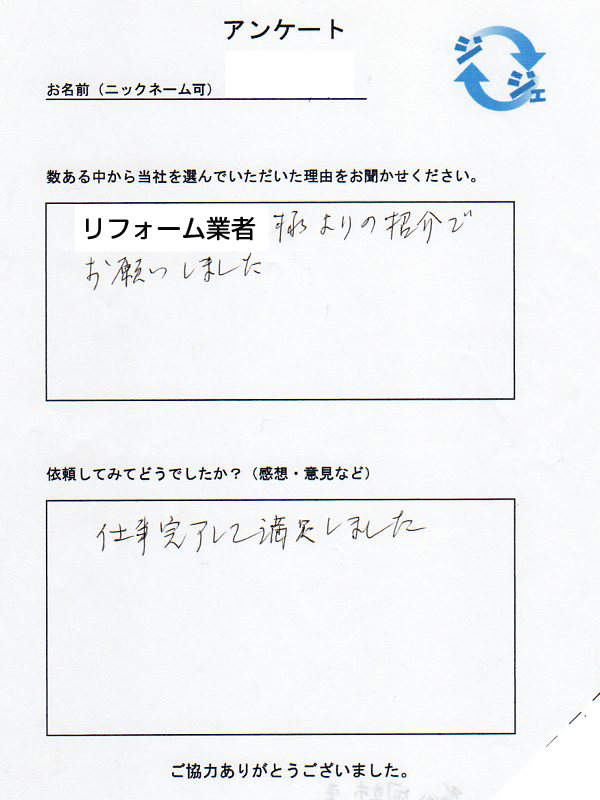 アンケート
ジジェ
お名前（ニックネーム可）
数ある中から当社を選んでいただいた理由をお聞かせください。
リフォーム業者 様よりの紹介で
お願いしました
依頼してみてどうでしたか？（感想・意見など）
仕事完了して満足しました
ご協力ありがとうございました。